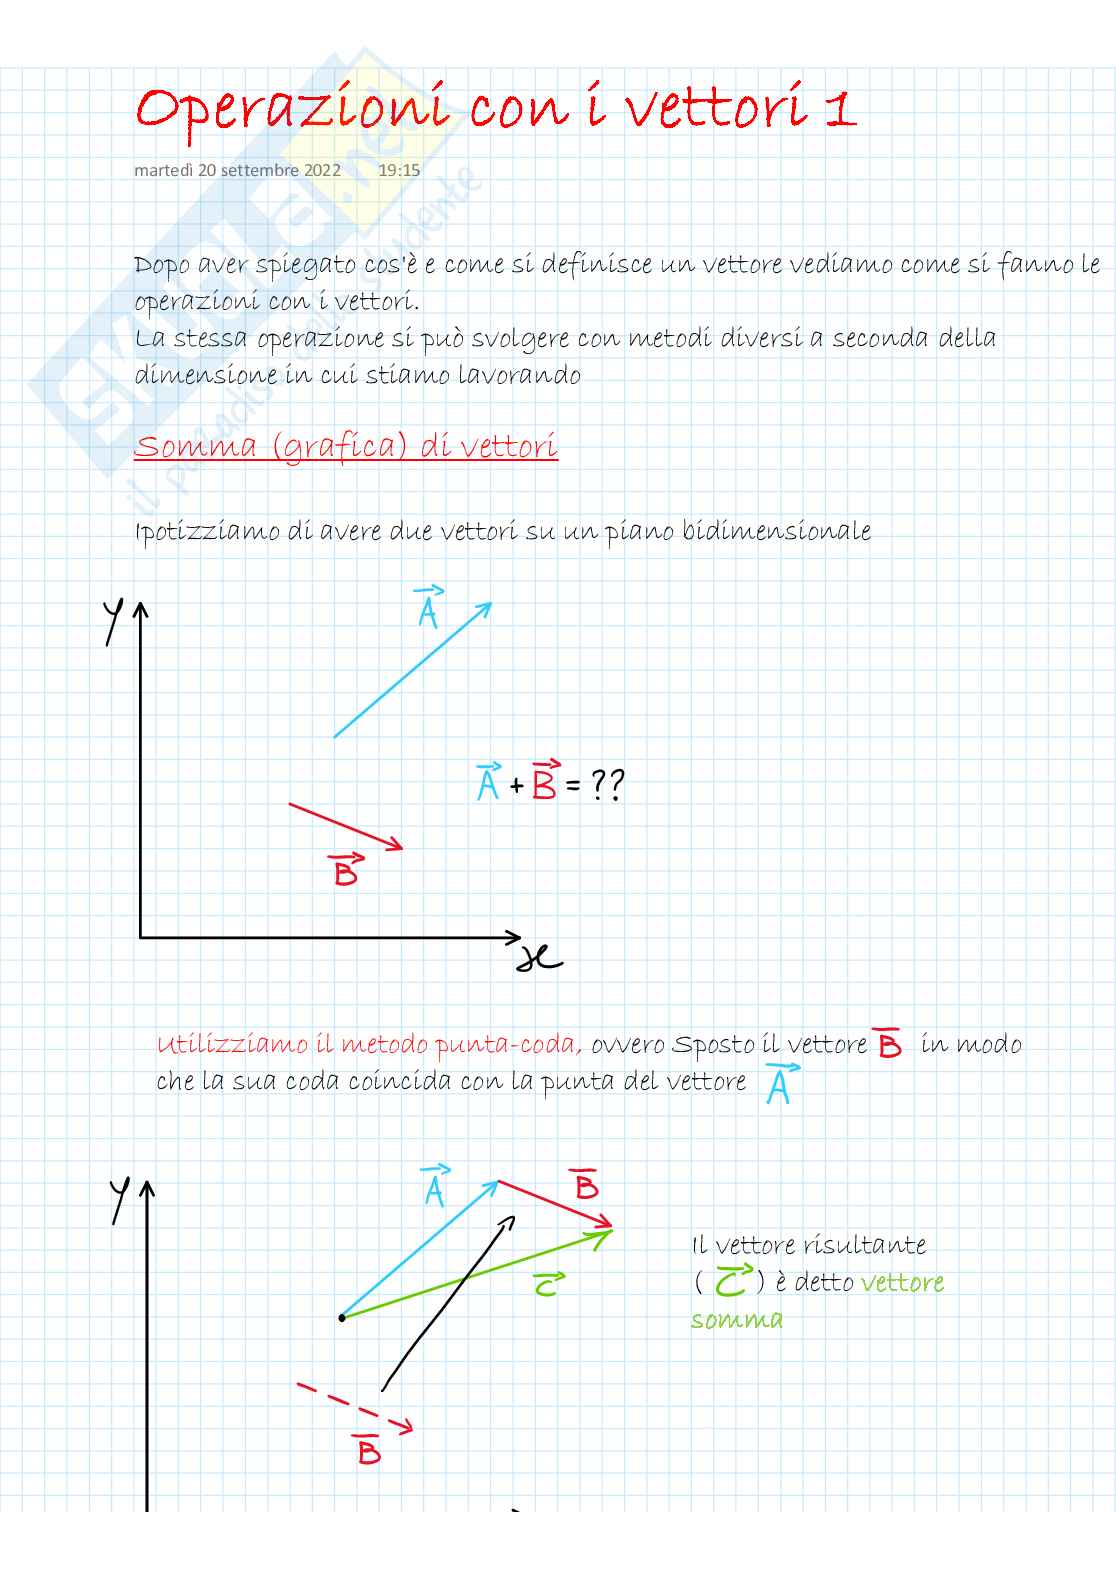 Operazioni con i vettori 1
martedì 20 settembre 2022 19:15
Dopo aver spiegato cos'è e come si definisce un vettore vediamo come si fanno le
operazioni con i vettori.
La stessa operazione si può svolgere con metodi diversi a seconda della
dimensione in cui stiamo lavorando
Somma (grafica) di vettori
Ipotizziamo di avere due vettori su un piano bidimensionale
y
A
A + B = ??
B
x
Utilizziamo il metodo punta-coda, ovvero Sposto il vettore B in modo
che la sua coda coincida con la punta del vettore A
y
A
B
C
B
Il vettore risultante
( C ) è detto vettore
somma
SKUOLA.net
il paradiso dello studente